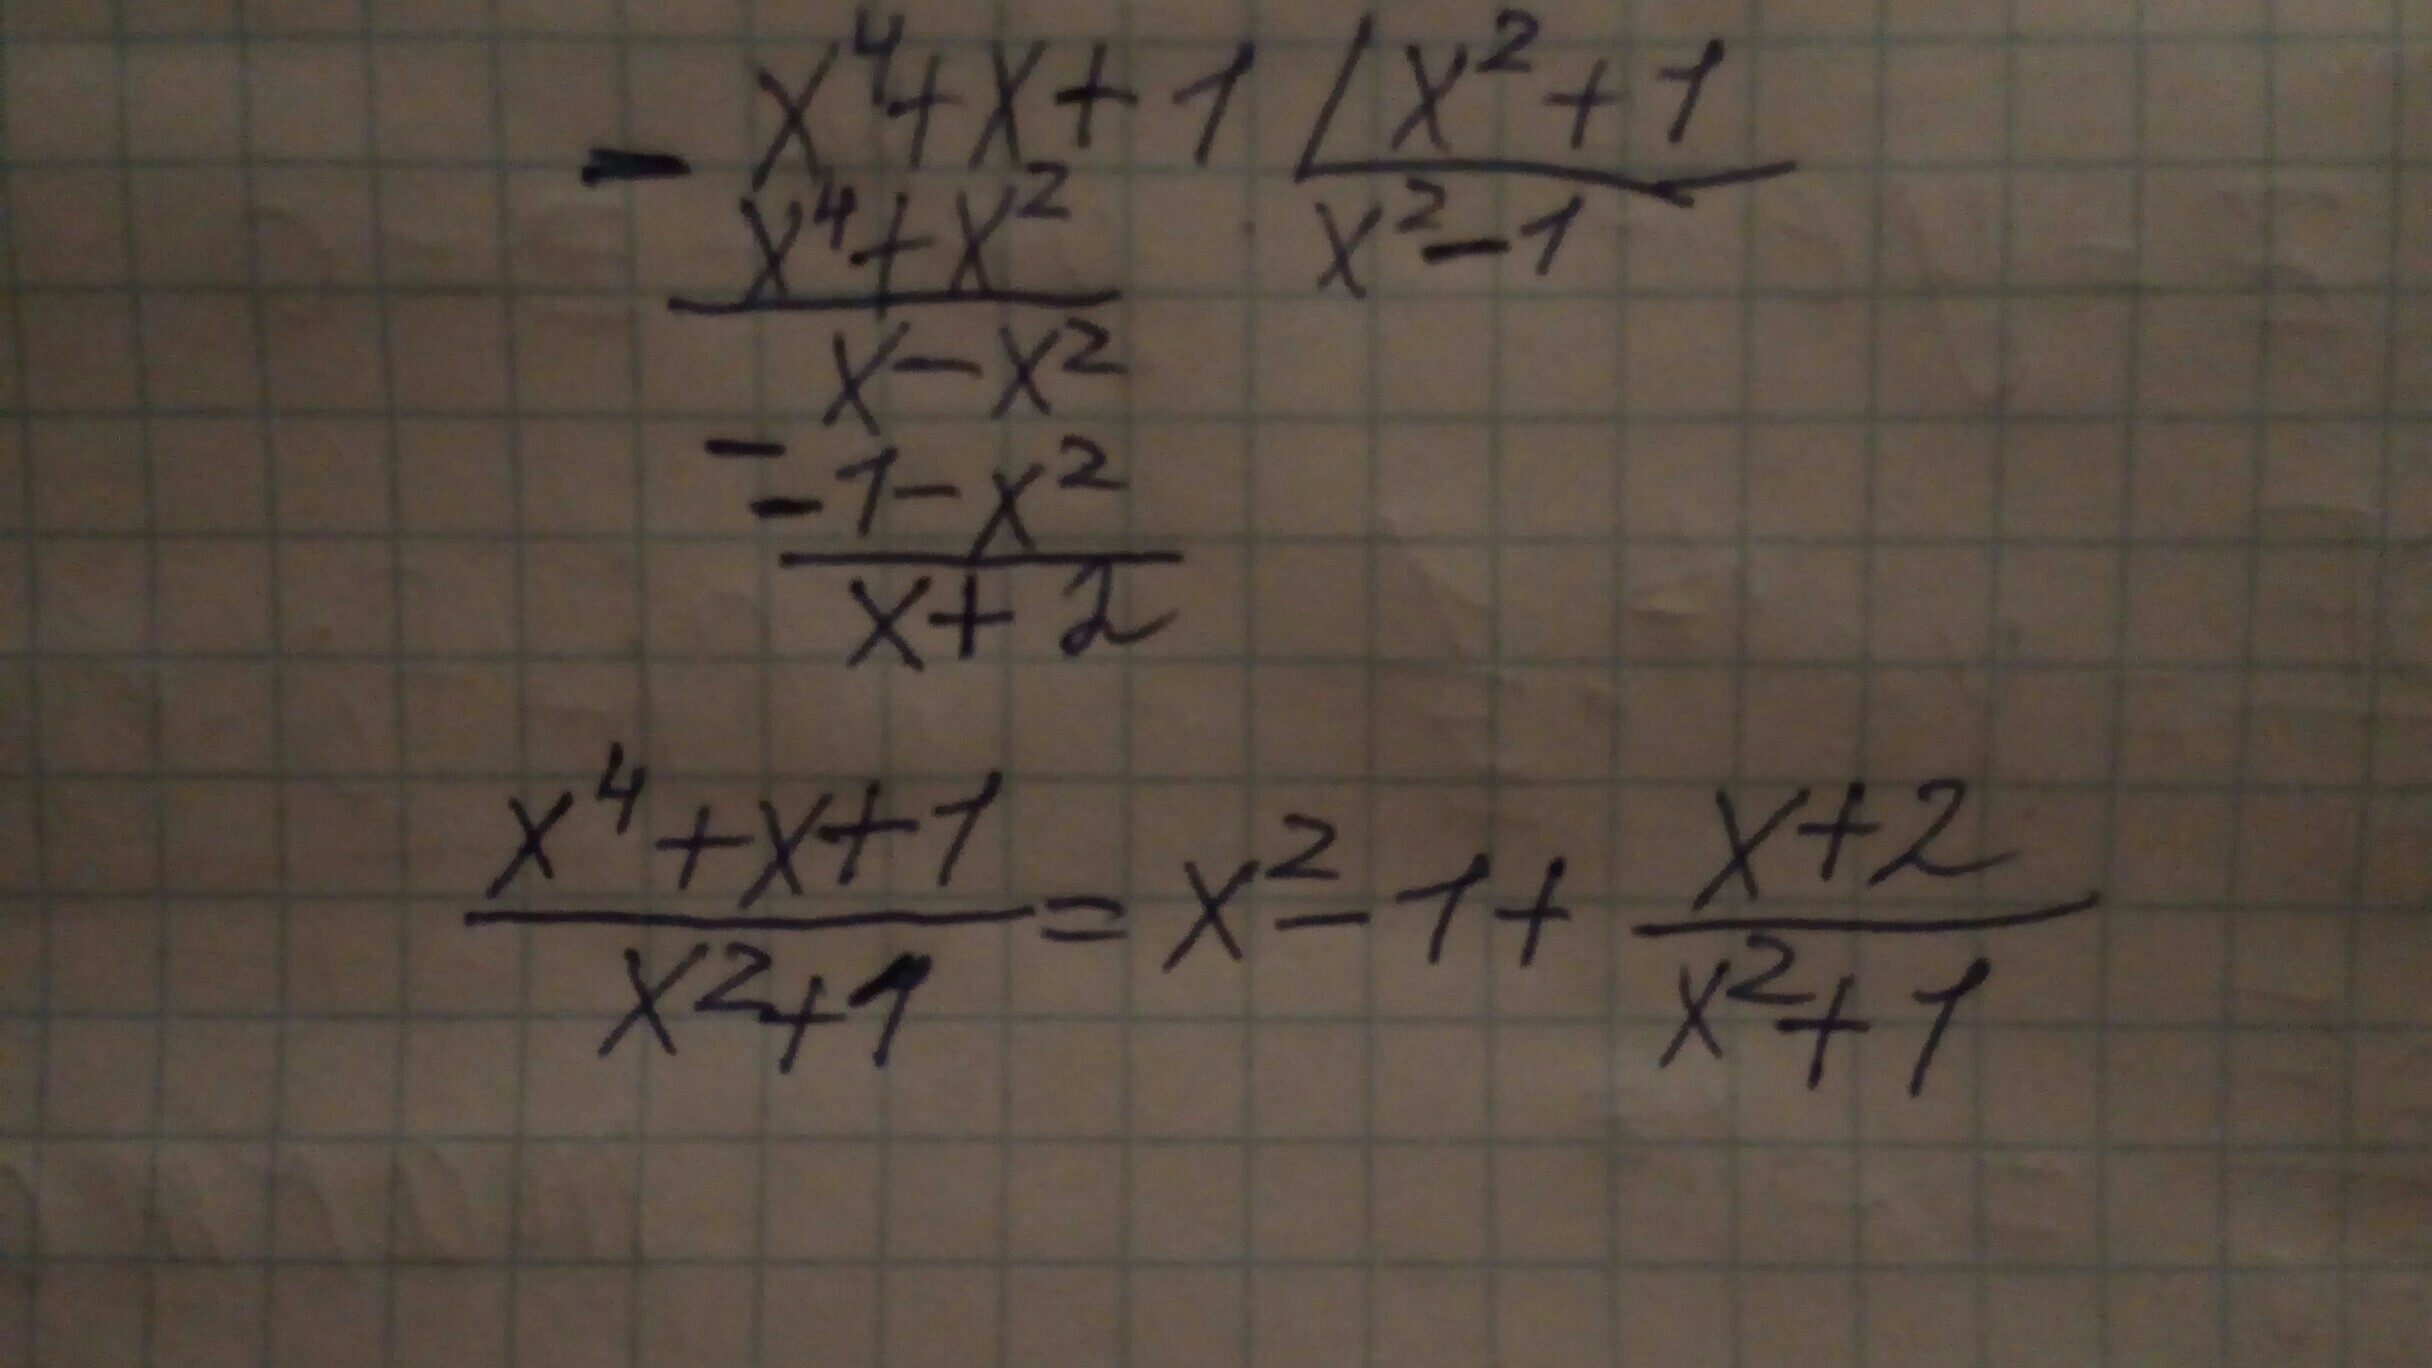 - x⁴+x+1 | x²+1
x⁴+x² x²-1
x-x²
- -1-x²
x+2
x⁴+x+1 x+2
= x²-1+
x²+1 x²+1